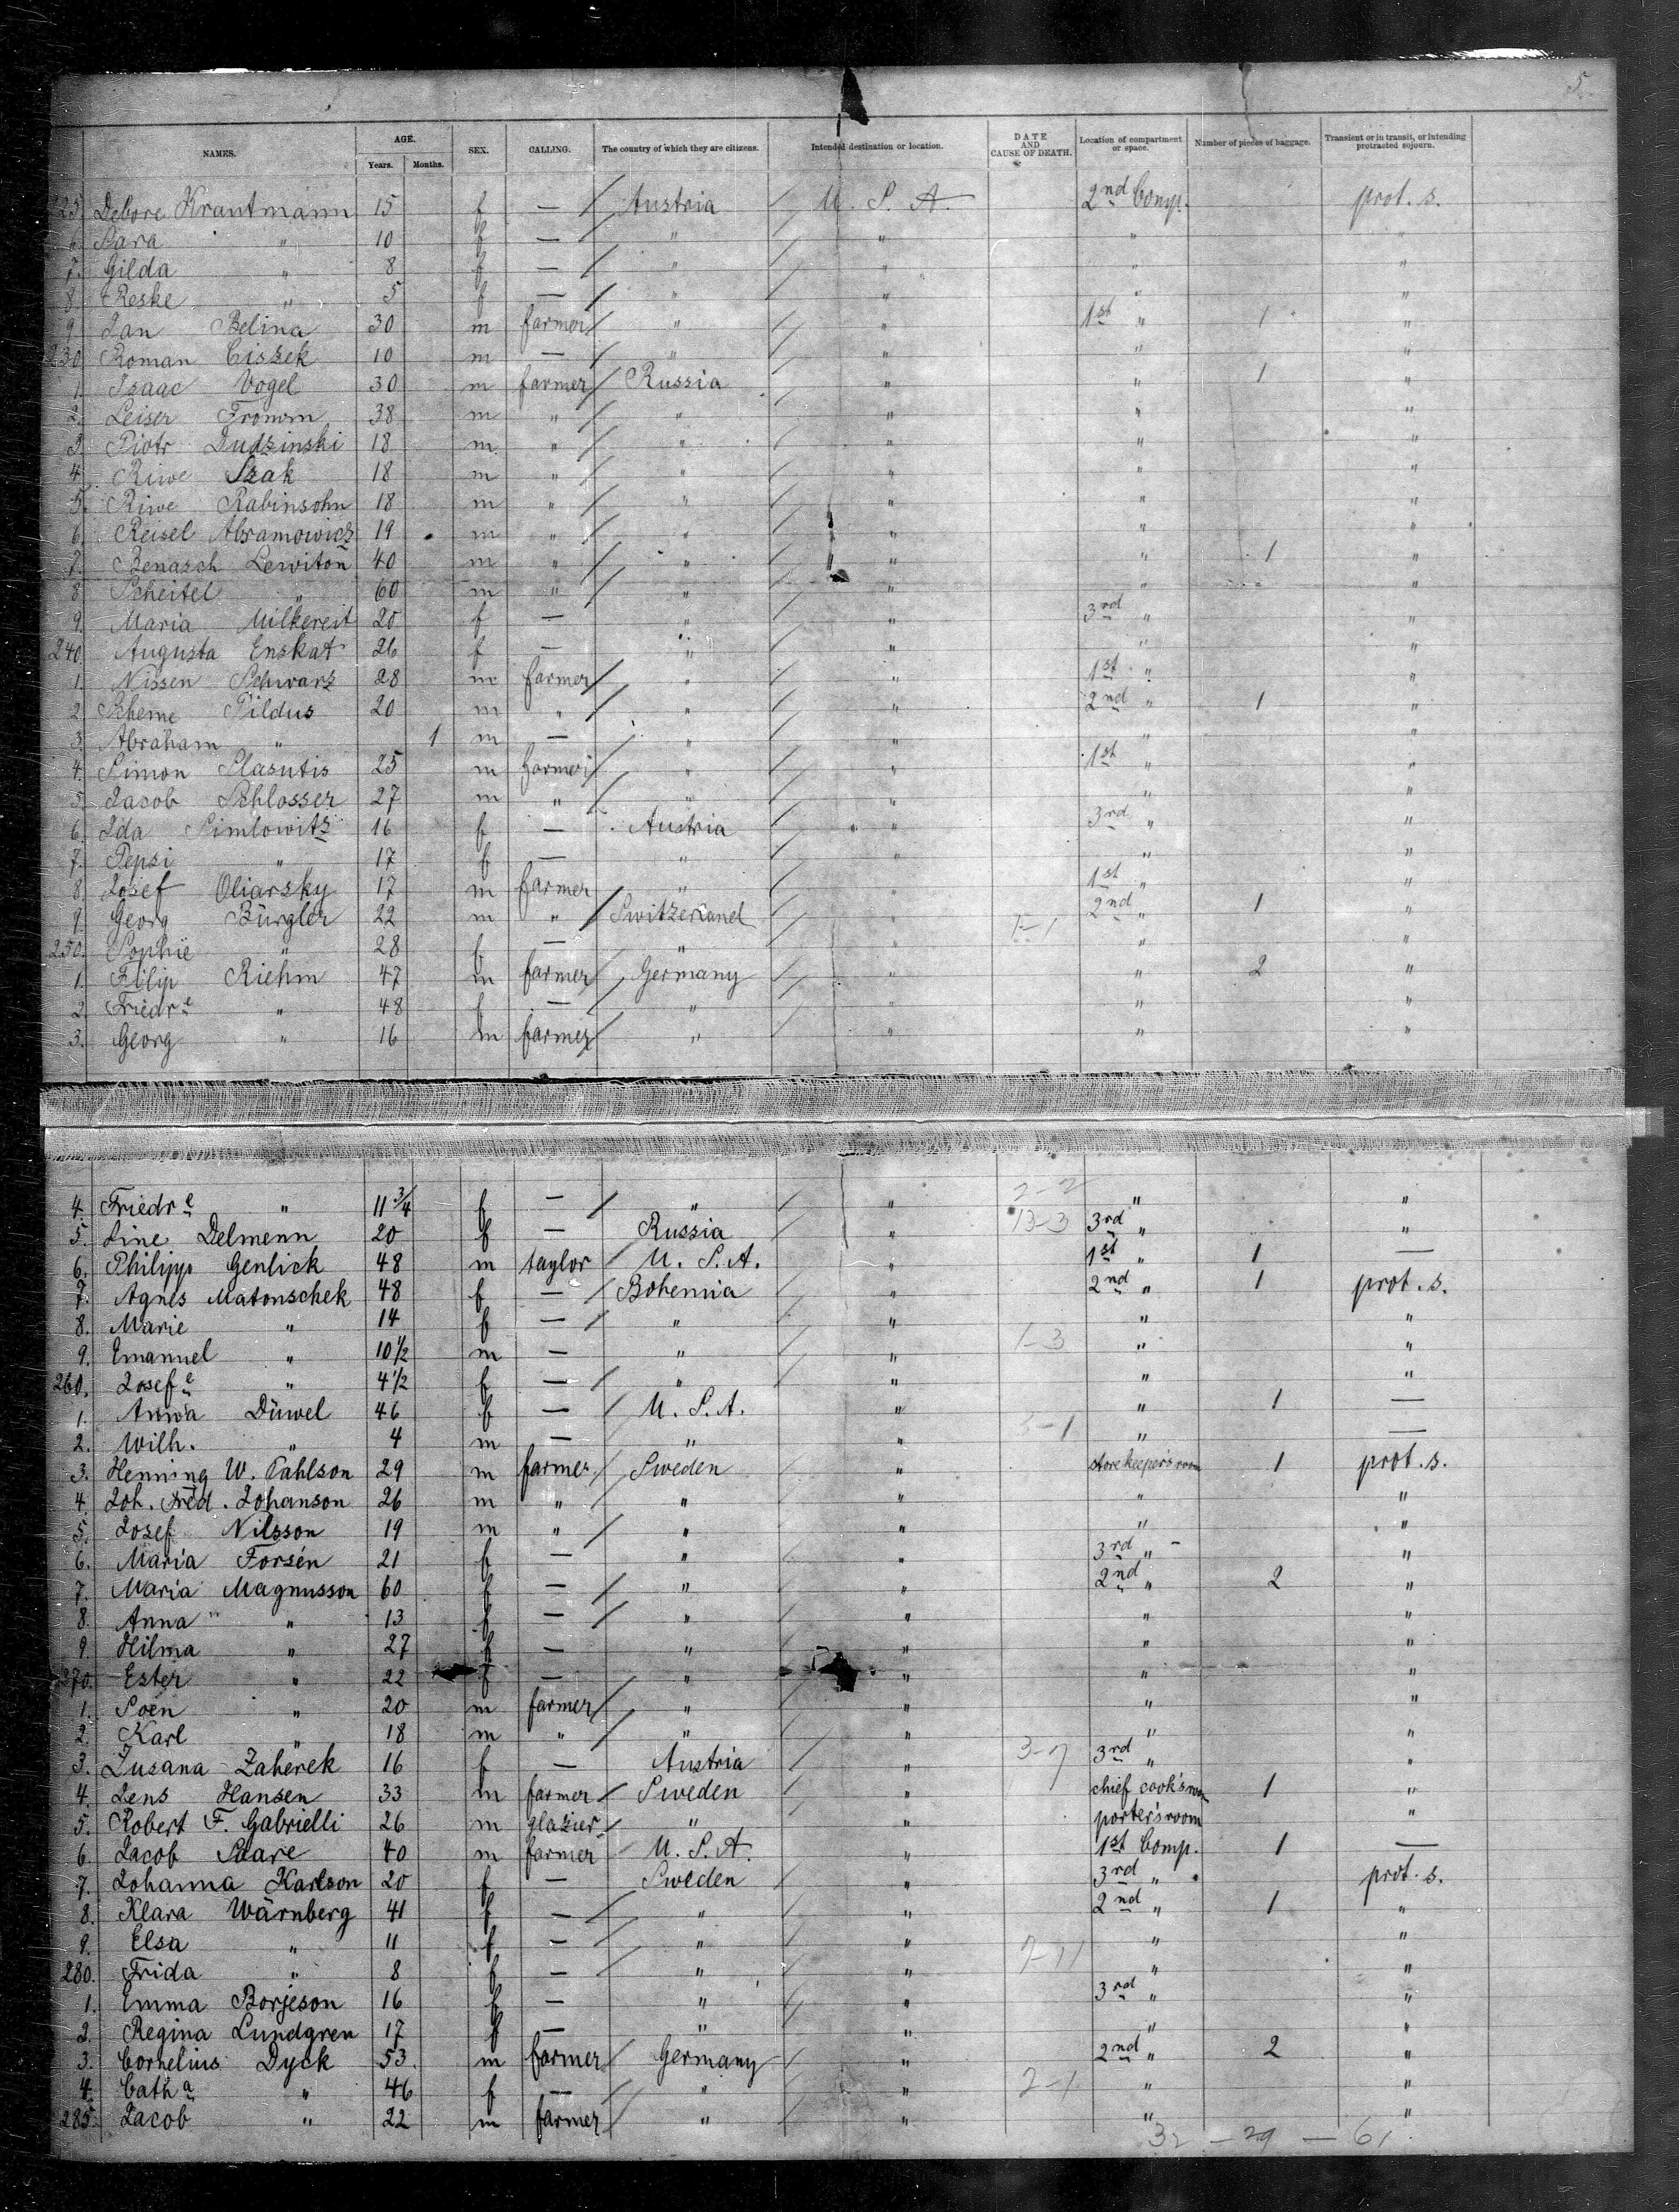 5.
NAMES. AGE. Years. Months. SEX. CALLING. The country of which they are citizens. Intended destination or location. DATE AND CAUSE OF DEATH. Location of compartment or space. Number of pieces of baggage. Transient or in transit, or intending protracted sojourn.
225. Debore Krautmann 15 f — Austria U. S. A. 2nd Comp. prot. s.
6. Sara " 10 f — " " " "
7. Gilda " 8 f — " " " "
8. Reske " 5 f — " " " "
9. Jan Belina 30 m farmer " " 1st " 1 "
230 Roman Ciszek 10 m — " " " "
1. Isaac Vogel 30 m farmer Russia " " 1 "
2. Leiser Fromm 38 m " " " " "
3. Piotr Dudzinski 18 m " " " " "
4. Riwe Szak 18 m " " " " "
5. Riwe Rabinsohn 18 m " " " " "
6. Reisel Abramowicz 19 m " " " " "
7. Benasch Lewiton 40 m " " " " 1 "
8 Scheitel " 60 m " " " " "
9. Maria Milkereit 20 f — " " 3rd " "
240. Augusta Enskat 26 f — " " " "
1. Nissen Schwarz 28 m farmer " " 1st " "
2. Scheme Pildus 20 m " " " 2nd " 1 "
3. Abraham " 1 m — " " " "
4. Simon Slasutis 25 m farmer " " 1st " "
5. Jacob Schlosser 27 m " " " " "
6. Ida Simlowitz 16 f — Austria " 3rd " "
7. Pepsi " 17 f — " " " "
8. Josef Oliarsky 17 m farmer " " 1st " "
9. Georg Bürgler 22 m " Switzerland " 1-1 2nd " 1 "
250. Sophie " 28 f — " " " "
1. Filip Riehm 47 m farmer Germany " " 2 "
2. Friedre " 48 f — " " " "
3. Georg " 16 m farmer " " " "
4. Friedre " 11 3/4 f — " " 2-2 " "
5. Line Delmenn 20 f — Russia " 13-3 3rd " "
6. Philipp Genlick 48 m taylor U. S. A. " 1st " 1 —
7. Agnes Matonschek 48 f — Bohemia " 2nd " 1 prot. s.
8. Marie " 14 f — " " " "
9. Emanuel " 10 1/2 m — " " 1-3 " "
260. Josefe " 4 1/2 f — " " " "
1. Anna Düwel 46 f — U. S. A. " " 1 —
2. Wilh. " 4 m — " " " —
3. Henning W. Pahlson 29 m farmer Sweden " storekeeper's room 1 prot. s.
4. Joh. Fred. Johanson 26 m " " " " "
5. Josef Nilsson 19 m " " " " "
6. Maria Forsén 21 f — " " 3rd " "
7. Maria Magnusson 60 f — " " 2nd " 2 "
8. Anna " 13 f — " " " "
9. Hilma " 27 f — " " " "
270. Ester " 22 f — " " " "
1. Soen " 20 m farmer " " " "
2. Karl " 18 m " " " " "
3. Zusana Zaherek 16 f — Austria " 3-7 3rd " "
4. Jens Hansen 33 m farmer Sweden " chief cook's room 1 "
5. Robert F. Gabrielli 26 m glazier " " porter's room "
6. Jacob Saare 40 m farmer U. S. A. " 1st Comp. 1 —
7. Johanna Karlson 20 f — Sweden " 3rd " prot. s.
8. Klara Wärnberg 41 f — " " 2nd " 1 "
9. Elsa " 11 f — " " 7-11 " "
280. Frida " 8 f — " " " "
1. Emma Borjeson 16 f — " " 3rd " "
2. Regina Lundgren 17 f — " " " "
3. Cornelius Dyck 53 m farmer Germany " 2nd " 2 "
4. Catha " 46 f — " " 2-1 " "
285. Jacob " 22 m farmer " " " "
32 — 29 — 61